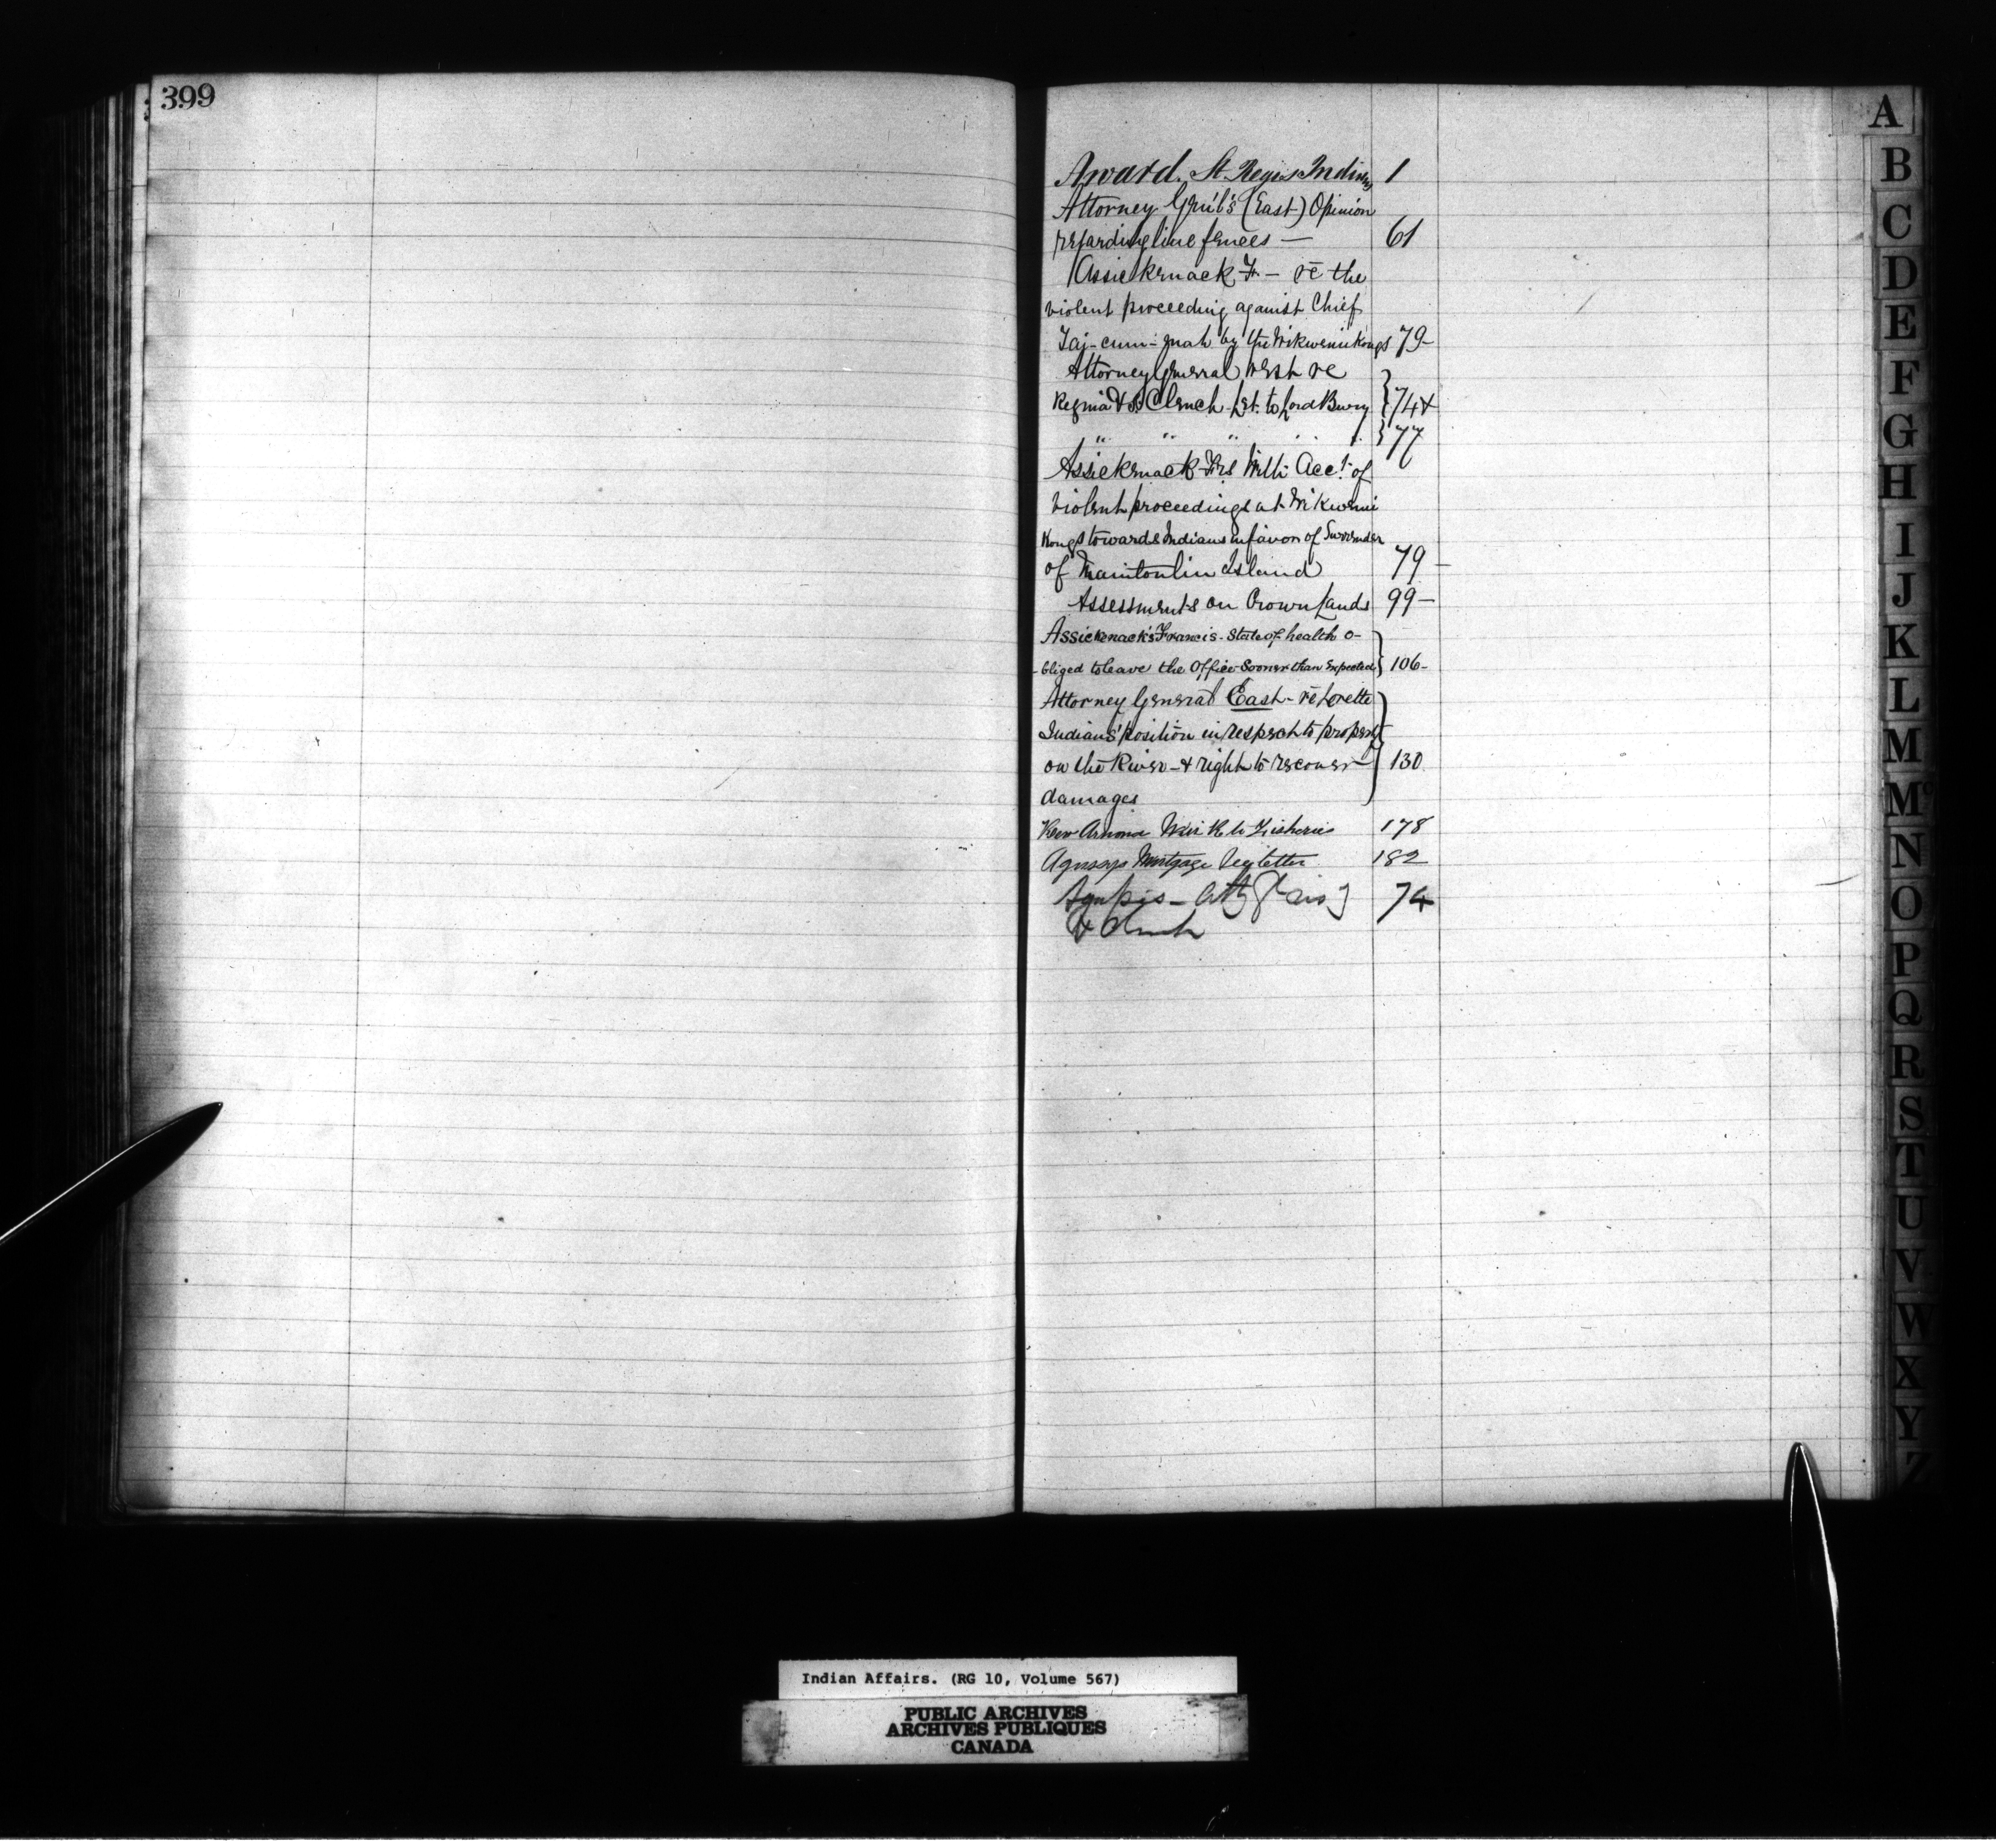 399
Award. St. Regis Indians 1
Attorney Gen'l's (East) Opinion
regarding line fences — 61
Assickenack F. — re the
violent proceeding against Chief
Tai-cum-mah by the Wikwemikongs 79-
Attorney General West re
Regina v Clench Let. to Lord Bury } 74 &
" " " " " } 77
Assickenack Frs Acct. of
violent proceedings at Wikwemi
kongs towards Indians in favor of Surrender
of Manitoulin Island 79 -
Assessments on Crown Lands 99 -
Assickenack's Francis - State of health o-
-bliged to leave the Office Sooner than Expected } 106 -
Attorney General East - re Lorette
Indians' position in respect to property
on the River - & right to recover — } 130
damages
Fisheries 178
Mortgage letter 182
74
A
B
C
D
E
F
G
H
I
J
K
L
M
Mc
N
O
P
Q
R
S
T
U
V
W
X
Y
Z
Indian Affairs. (RG 10, Volume 567)
PUBLIC ARCHIVES
ARCHIVES PUBLIQUES
CANADA